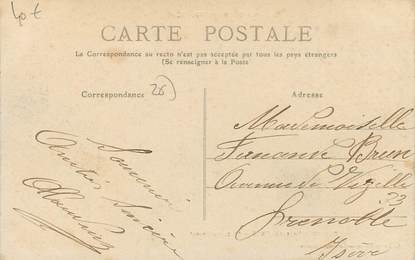 40 €
CARTE POSTALE
La Correspondance au recto n'est pas acceptée par tous les pays étrangers
(Se renseigner à la Poste
Correspondance
26
Adresse
Souvenir
Amitié Sincère
Mademoiselle
Fernande Brun
Avenue de Vizille
33
Grenoble
Isère